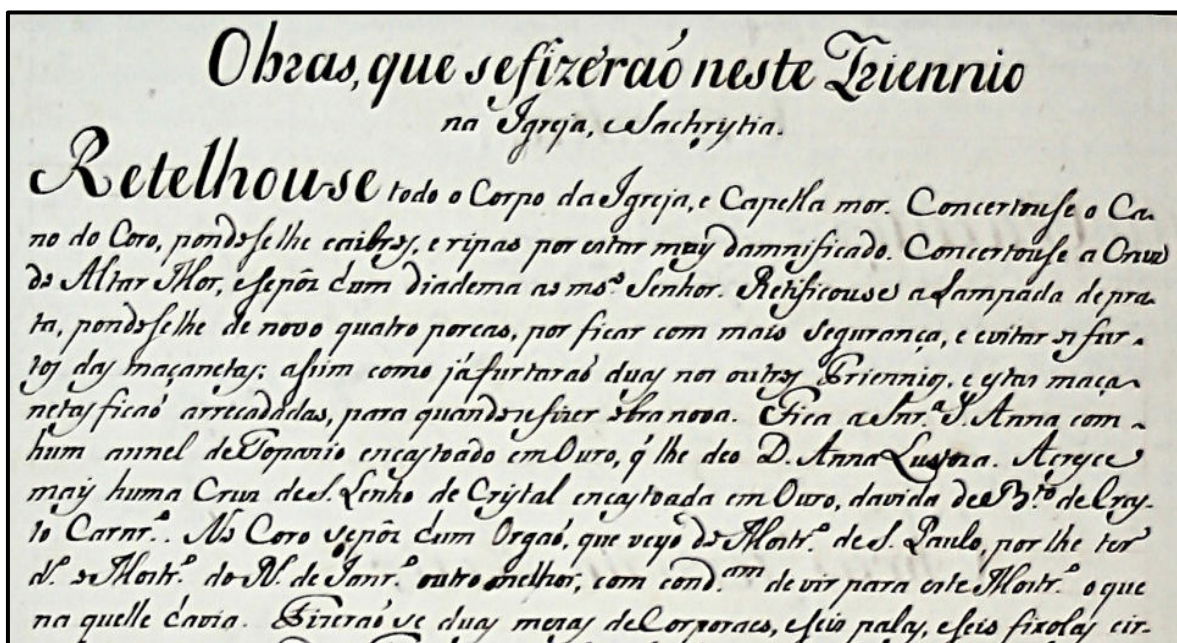 Obras, que se fizeraõ neste Triennio
na Igreja, e Sachrystia.
Retelhouse todo o Corpo da Igreja, e Capella mor. Concertouse o Ca-
no do Coro, pondoselhe caibros, e ripas por estar muy damnificado. Concertouse a Cruz
do Altar Mor, e sepôs hum diadema ao ms.º Senhor. Retificouse a Lampada de pra-
ta, pondoselhe de novo quatro porcas, por ficar com mais segurança, e evitar os fur-
tos das maçanetas; assim como já furtaraõ duas nos outros Triennios, e estas maça-
netas ficaõ arrecadadas, para quando se fizer obra nova. Fica a Snr.ª S. Anna com
hum annel de Topazio encastoado em Ouro, q̃ lhe deo D. Anna Acresce
mais huma Cruz de S. Lenho de Crystal encastoada em Ouro, davida de B.to de Cras-
to Carnr.º. No Coro sepôs hum Orgaõ, que veyo do Mostr.º de S. Paulo, por lhe ter
d.º o Mostr.º do R.º de Janr.º outro melhor, com cond.am de vir para este Mostr.º o que
na quelle havia. Fizeraõ se duas mezas de Corporaes, e seis palas, e seis